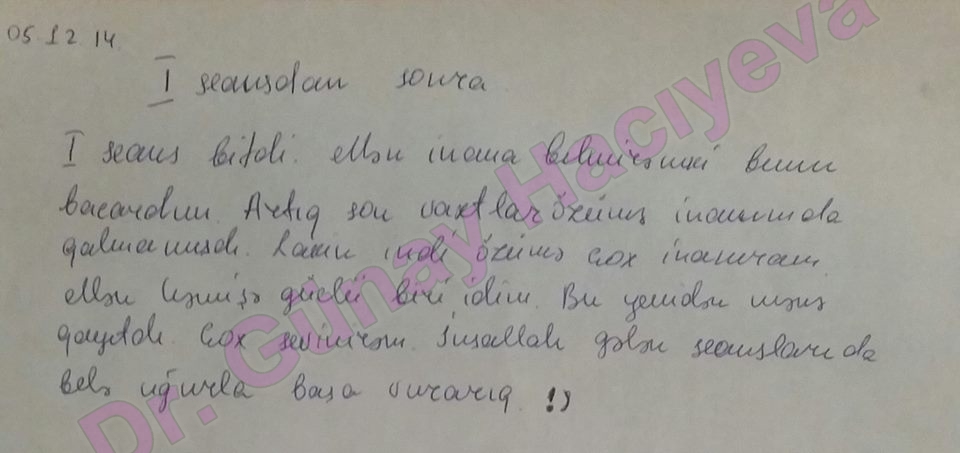 05.12.14.
I seansdan sonra
I seans bitdi. Mən inana bilmirəmki bunu
bacardım. Artıq son vaxtlar özümə inamımda
qalmamışdı. Lakin indi özümə çox inanıram.
Mən həmişə güclü biri idim. Bu yenidən mənə
qayıtdı. Çox sevinirəm. İnşallah gələn seansları da
belə uğurla başa vurarıq. !)
Dr. Günay Hacıyeva